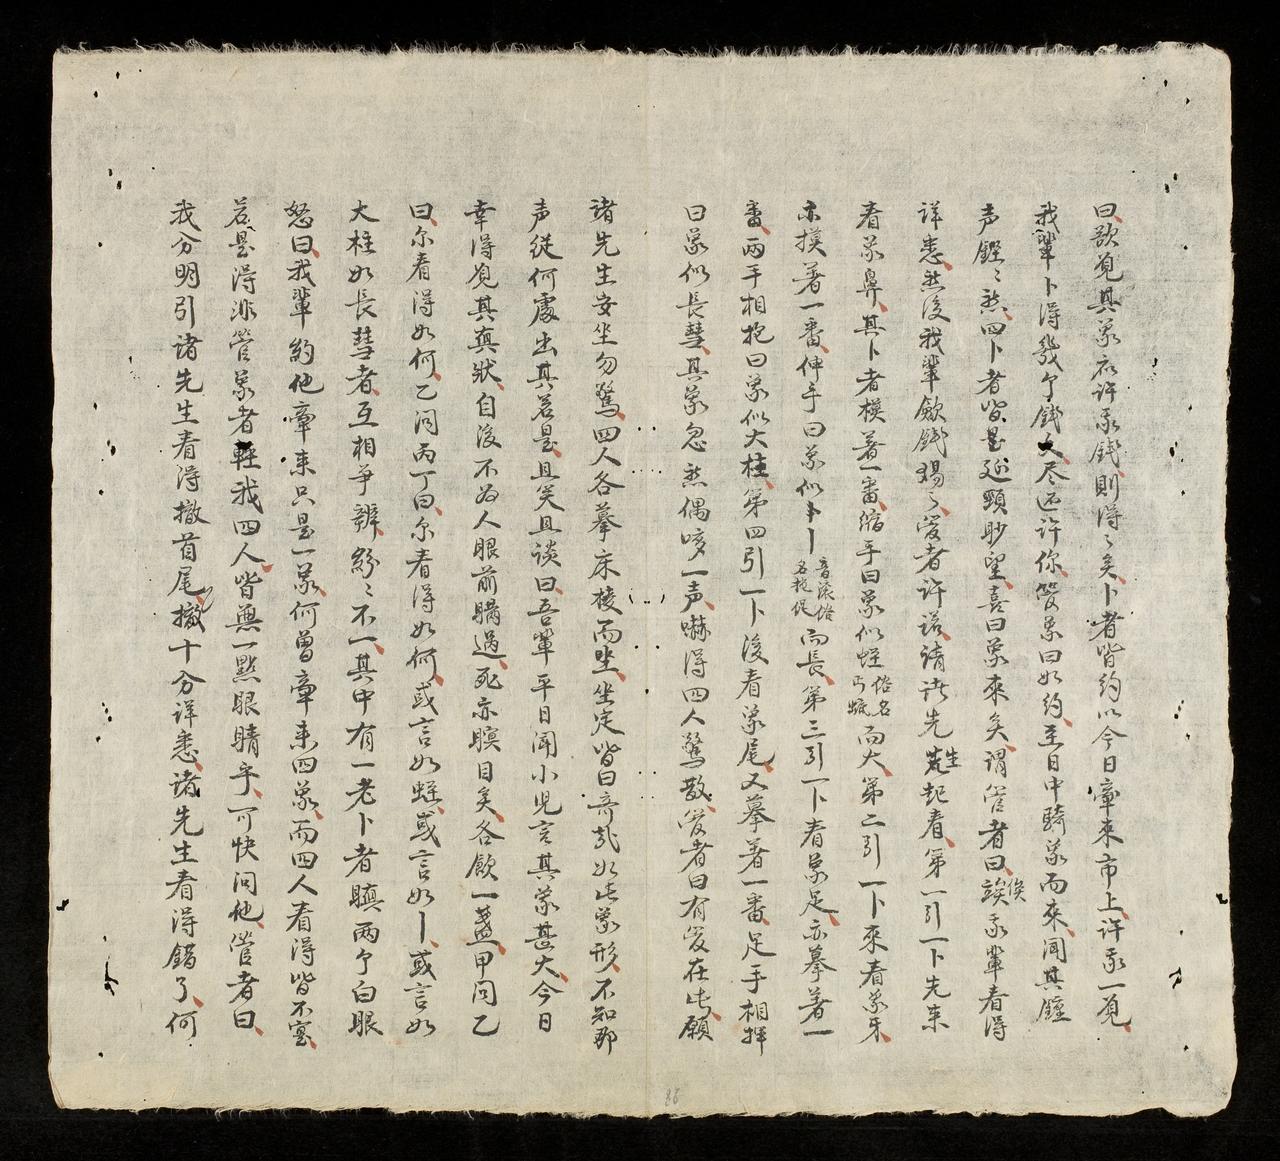 曰欲覓其象衣許我錢則得〻矣卜者皆約以今日牽來市上許我一覓
我輩卜得幾个錢尽还許你管象曰如約至日中騎象而來聞其鐘
声鏗〻然四卜者皆是延頸眇望喜曰象來矣謂管者曰俟我輩看得
詳悉然後我輩斂錢賜之管者許諾請諸先生起看第一引一卜先來
看象鼻其卜者模著一番縮手曰象似蛭俗名丐蚯而大第二引一卜來看象牙
亦摸著一番伸手曰象似丨音滚俗名捴伲而長第三引一卜看象足亦摹著一
番兩手相抱曰象似大柱第四引一卜後看象尾又摹著一番足手相揮
曰象似長彗其象忽然偶哆一声嚇得四人驚散管者曰有管在此願
諸先生安坐勿驚四人各摹床棱而坐坐定皆曰奇哉如此象形不知那
声從何處出其若是且笑且談曰吾輩平日闻小児言其象甚大今日
幸得覓其真狀自後不为人眼前瞞過死亦瞑目矣各飲一盞甲问乙
曰尔看得如何乙问丙丁曰尔看得如何或言如蛭或言如丨或言如
大柱如長彗者互相爭辦紛〻不一其中有一老卜者瞋两个白眼
怒曰我輩約他牽来只是一象何曾牽来四象而四人看得皆不寔
若是得非管象者輕我四人皆無一點眼睛乎可快问他管者曰
我分明引诸先生看得撤首尾撤十分详悉诸先生看得錯了何